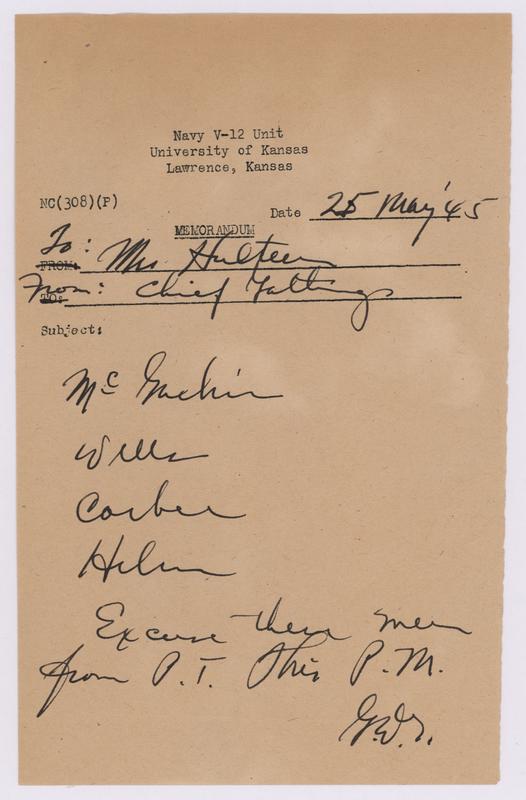 Navy V-12 Unit
University of Kansas
Lawrence, Kansas
NC(308)(P)
Date 25 May '45
MEMORANDUM
To:
FROM: Mrs Hulteen
From:
TO: Chief
Subject:
Mc
Wells
Corber
Helm
Excuse these men
from P.T. this P.M.